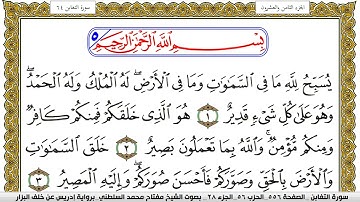 الجزء الثامن والعشرون
سورة التغابن ٦٤
بِسْمِ اللَّهِ الرَّحْمَٰنِ الرَّحِيمِ
يُسَبِّحُ لِلَّهِ مَا فِى السَّمَٰوَٰتِ وَمَا فِى الْأَرْضِ لَهُ الْمُلْكُ وَلَهُ الْحَمْدُ
وَهُوَ عَلَىٰ كُلِّ شَىْءٍ قَدِيرٌ ١ هُوَ الَّذِى خَلَقَكُمْ فَمِنكُمْ كَافِرٌ
وَمِنكُم مُّؤْمِنٌ وَاللَّهُ بِمَا تَعْمَلُونَ بَصِيرٌ ٢ خَلَقَ السَّمَٰوَٰتِ
وَالْأَرْضَ بِالْحَقِّ وَصَوَّرَكُمْ فَأَحْسَنَ صُوَرَكُمْ وَإِلَيْهِ الْمَصِيرُ ٣
سورة التغابن . الصفحة ٥٥٦ . الحزب ٥٦ . الجزء ٢٨ . بصوت الشيخ مفتاح محمد السلطني . برواية إدريس عن خلف البزار